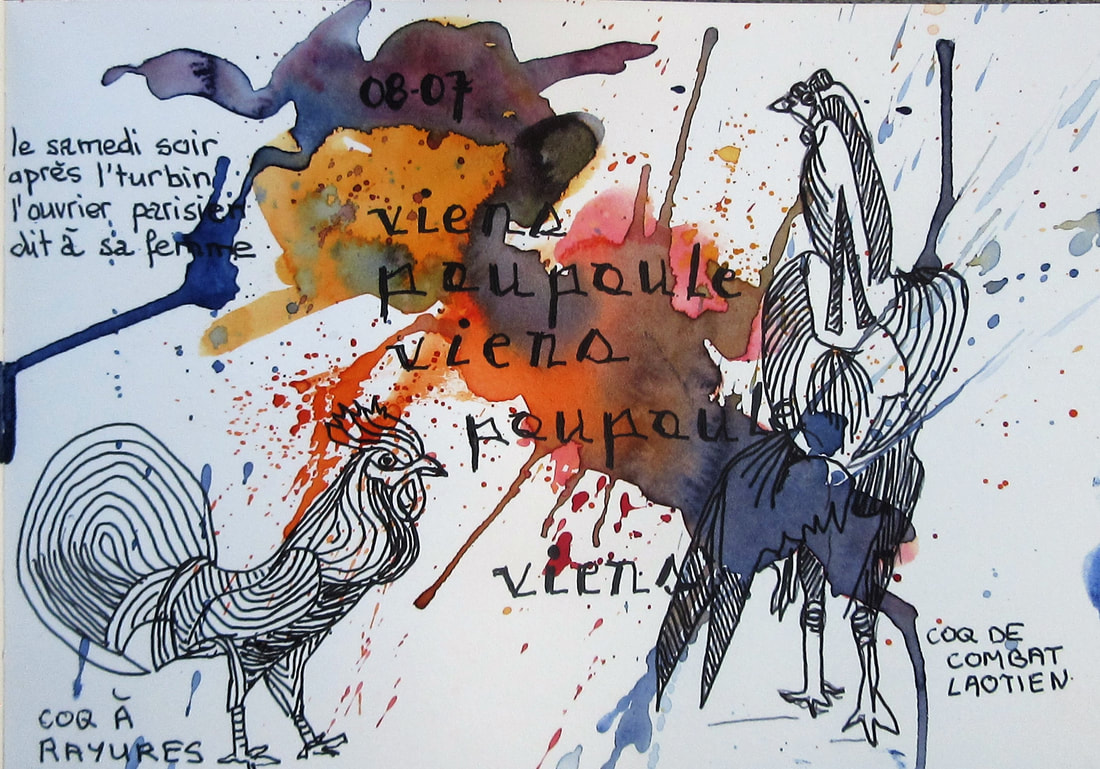 08-07
le samedi soir
après l'turbin
l'ouvrier parisien
dit à sa femme
viens
poupoule
viens
poupoule
viens
COQ À
RAYURES
COQ DE
COMBAT
LAOTIEN.